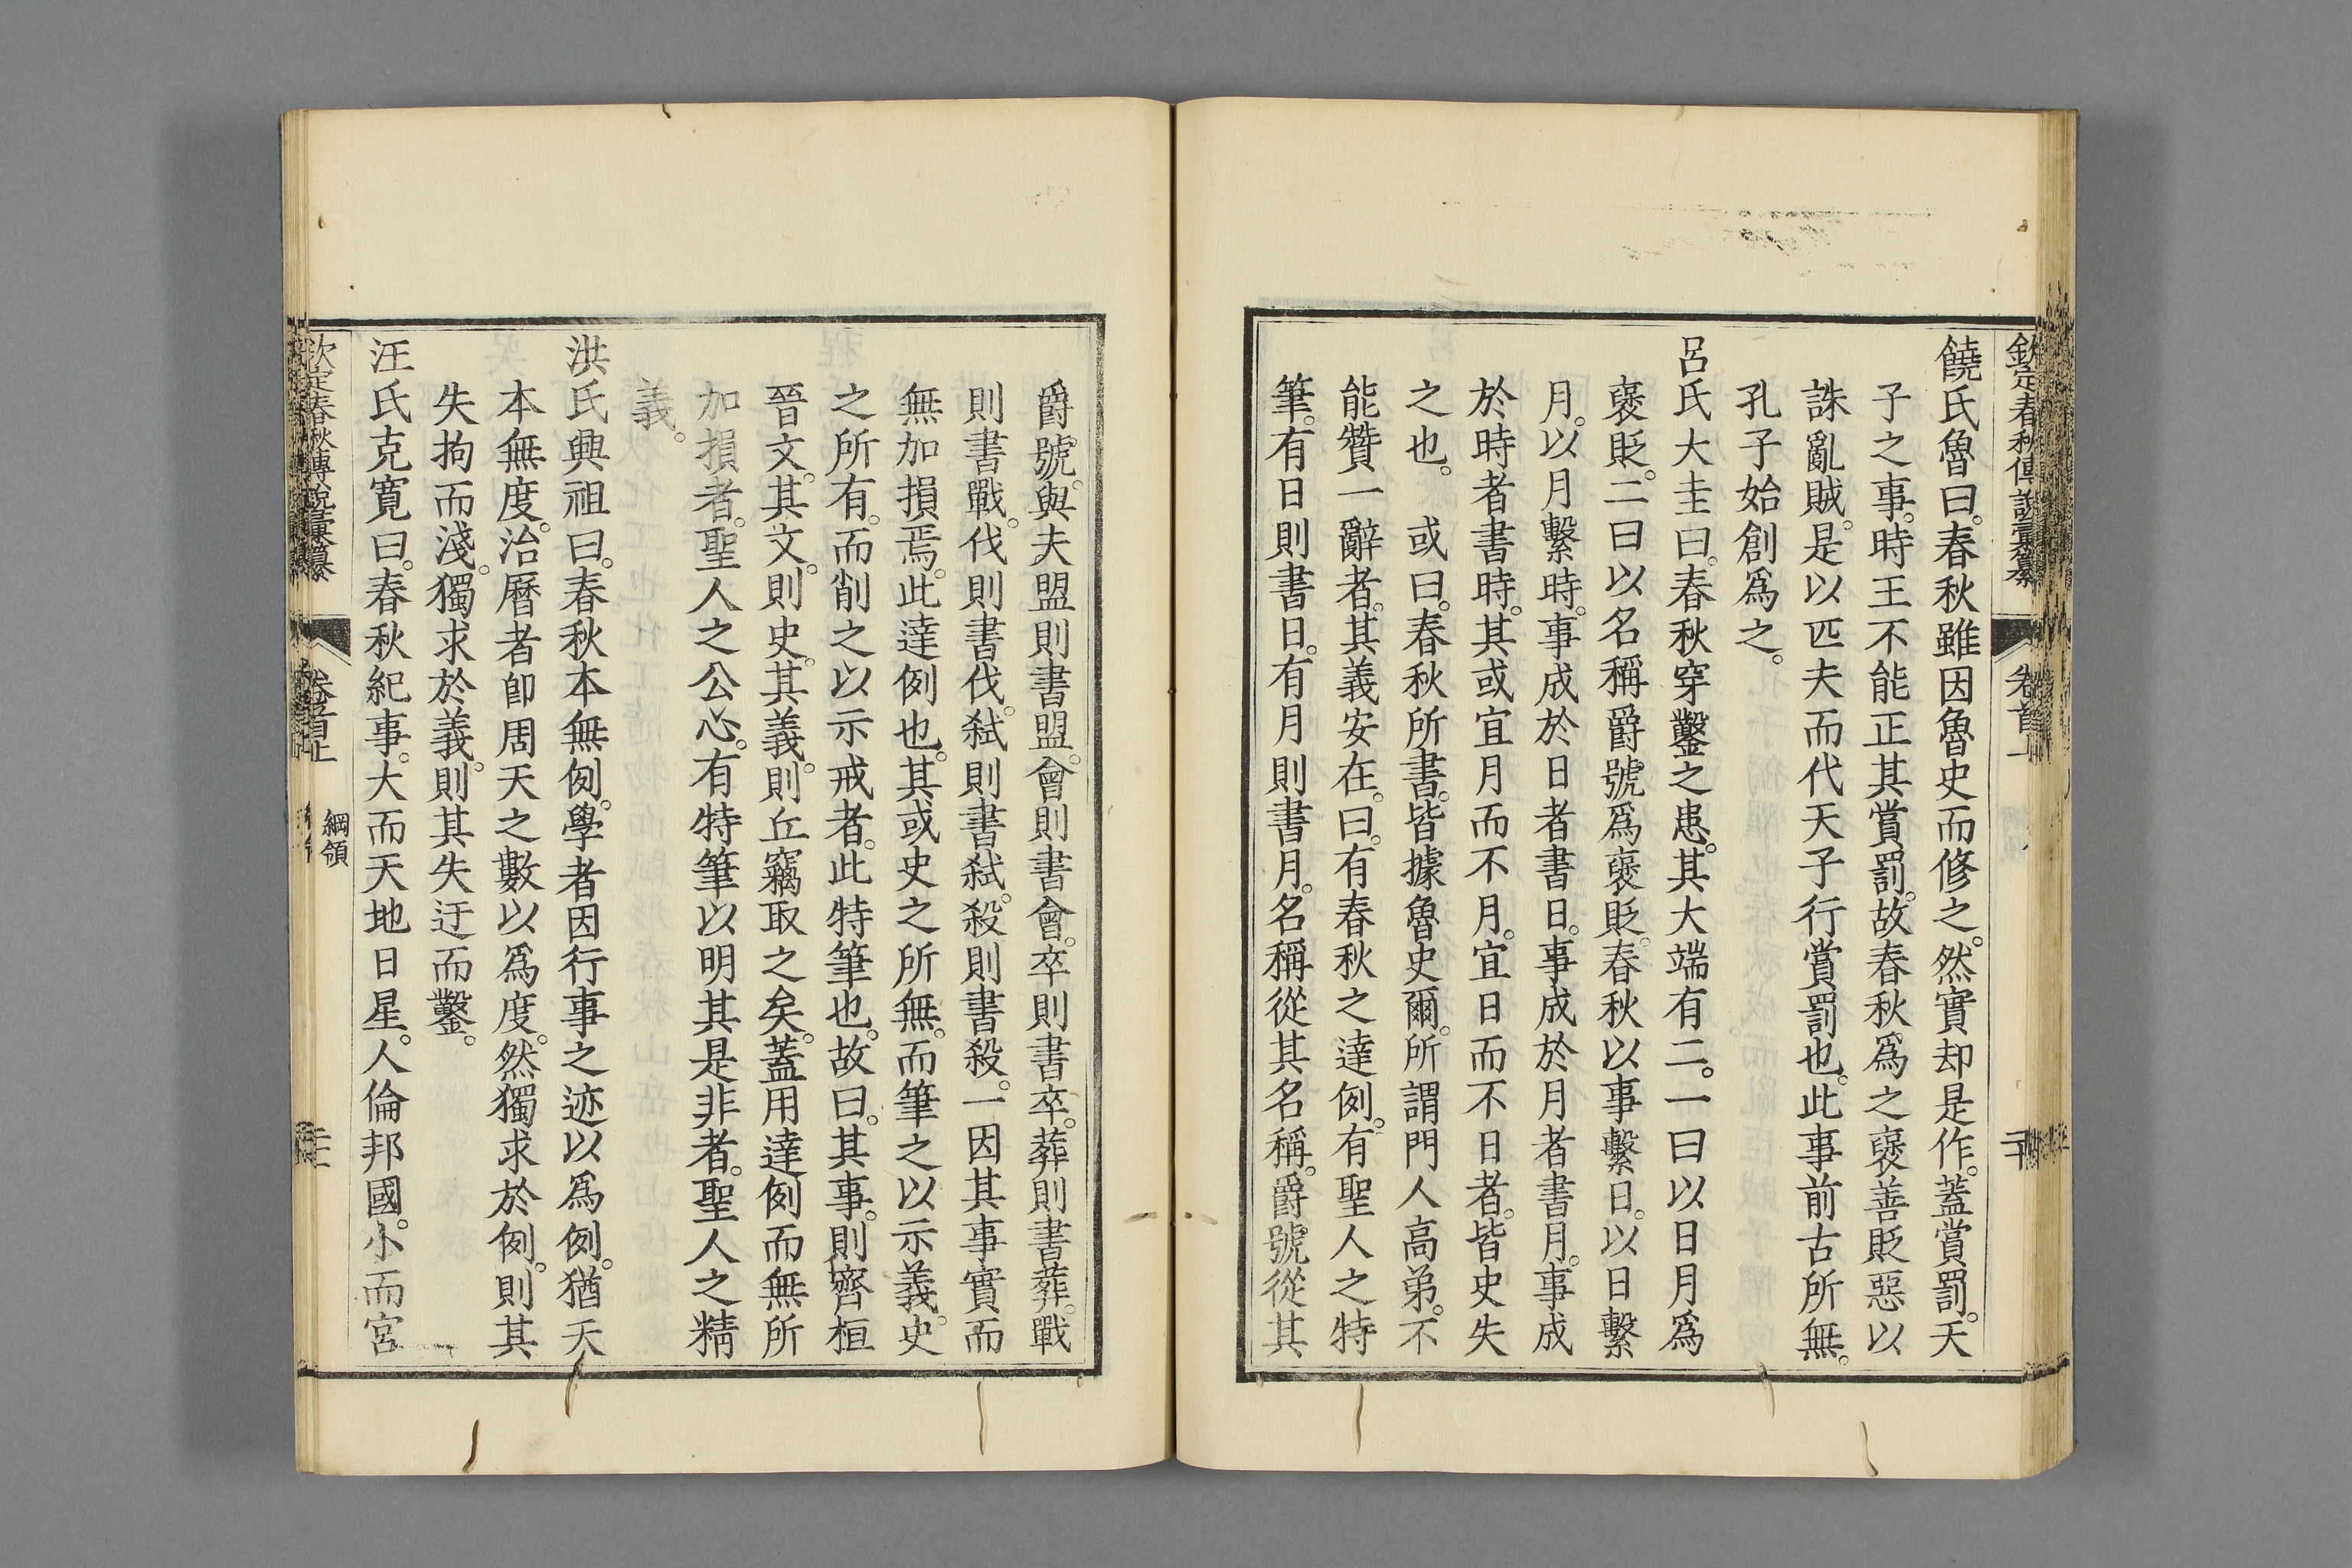 欽定春秋傳說彙纂　卷首上
饒氏魯曰。春秋雖因魯史而修之。然實却是作。蓋賞罰。天
子之事。時王不能正其賞罰。故春秋爲之襃善貶惡以
誅亂賊。是以匹夫而代天子行賞罰也。此事前古所無。
孔子始創爲之。
呂氏大圭曰。春秋穿鑿之患。其大端有二。一曰以日月爲
襃貶。二曰以名稱爵號爲襃貶。春秋以事繫日。以日繫
月。以月繫時。事成於日者書日。事成於月者書月。事成
於時者書時。其或宜月而不月。宜日而不日者。皆史失
之也。　或曰。春秋所書。皆據魯史爾。所謂門人高弟。不
能贊一辭者。其義安在。曰。有春秋之達例。有聖人之特
筆。有日則書日。有月則書月。名稱從其名稱。爵號從其
爵號。與夫盟則書盟。會則書會。卒則書卒。葬則書葬。戰
則書戰。伐則書伐。弑則書弑。殺則書殺。一因其事實而
無加損焉。此達例也。其或史之所無。而筆之以示義。史
之所有。而削之以示戒者。此特筆也。故曰。其事。則齊桓
晉文。其文。則史。其義。則丘竊取之矣。蓋用達例而無所
加損者。聖人之公心。有特筆以明其是非者。聖人之精
義。
洪氏興祖曰。春秋本無例。學者因行事之迹以爲例。猶天
本無度。治曆者卽周天之數以爲度。然獨求於例。則其
失拘而淺。獨求於義。則其失迂而鑿。
汪氏克寬曰。春秋紀事。大而天地日星。人倫邦國。小而宮
欽定春秋傳說彙纂　卷首上　綱領